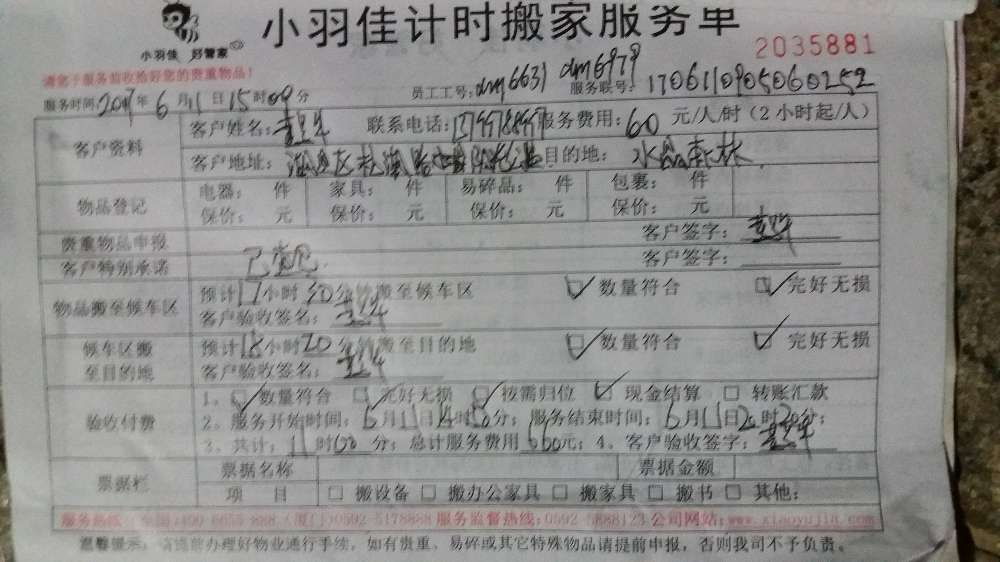 小羽佳计时搬家服务单
小羽佳 好管家
2035881
请您于服务前收拾好您的贵重物品！
服务时间：2017年6月11日15时09分 员工工号：xm6631 xm6979 服务联号：170611090506025 2
客户资料 客户姓名： 联系电话： 服务费用：60元/人/时（2小时起/人）
客户地址： 目的地：水晶森林
物品登记 电器： 件 家具： 件 易碎品： 件 包裹： 件
保价： 元 保价： 元 保价： 元 保价： 元
贵重物品申报 客户签字：
客户特别承诺 客户签字：
物品搬至候车区 预计17小时50分钟搬至候车区 数量符合 完好无损
客户验收签名：
候车区搬至目的地 预计18小时20分钟搬至目的地 数量符合 完好无损
客户验收签名：
验收付费 1、数量符合 完好无损 按需归位 现金结算 转账汇款
2、服务开始时间：6月11日 时 分；服务结束时间：6月11日 时 分；
3、共计：11时00分；总计服务费用660元；4、客户验收签字：
票据栏 票据名称 票据金额
项 目 搬设备 搬办公家具 搬家具 搬书 其他：
服务热线：全国:400 6655 888 (厦门)0592-5178888 服务监督热线:0592-5888123 公司网站:www.xiaoyujia.com
温馨提示：请提前办理好物业通行手续，如有贵重、易碎或其它特殊物品请提前申报，否则我司不予负责。